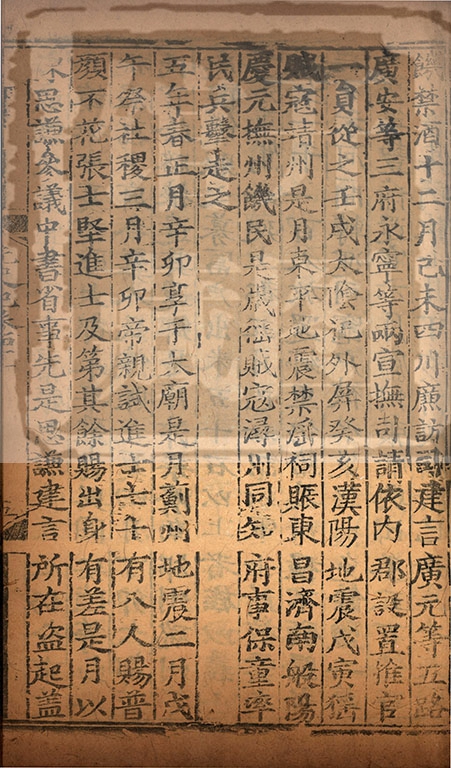 饑禁酒十二月己未四川廉訪司建言廣元等五路
廣安等三府永寧等兩宣撫司請依内郡設置惟官
一員從之壬戌太陰犯外屏癸亥漢陽地震戊寅猺
賊寇靖州是月東平地震禁淫祠賑東昌濟南般陽
慶元撫州饑民是歲猺賊寇潯州同知府事保童率
民兵擊走之
五年春正月辛卯享于太廟是月薊州地震二月戊
午祭社稷三月辛卯帝親試進士七十有八人賜普
顔不花張士堅進士及第其餘賜出身有差是月以
思謙參議中書省事先是思謙建言所在盗起蓋